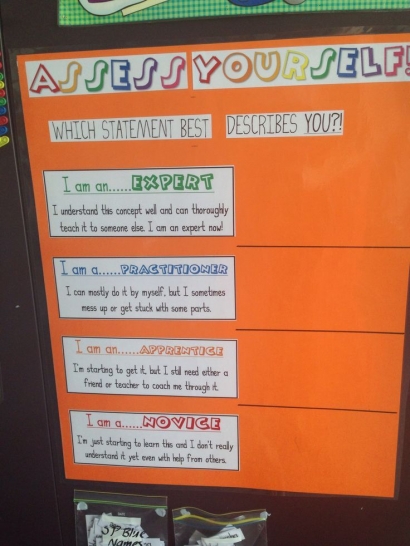 ASSESS YOURSELF!
WHICH STATEMENT BEST DESCRIBES YOU?!
I am an......EXPERT
I understand this concept well and can thoroughly
teach it to someone else. I am an expert now!
I am a......PRACTITIONER
I can mostly do it by myself, but I sometimes
mess up or get stuck with some parts.
I am an......APPRENTICE
I'm starting to get it, but I still need either a
friend or teacher to coach me through it.
I am a......NOVICE
I'm just starting to learn this and I don't really
understand it yet even with help from others.
5P Blue
Names